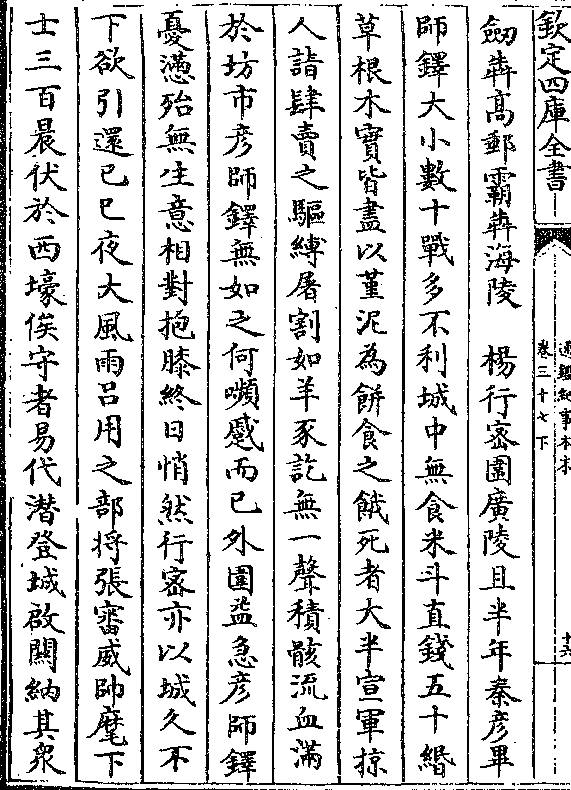 欽定四庫全書
通鑑紀事本末
卷三十七下
十六
劒犇高郵霸犇海陵　楊行密圍廣陵且半年秦彦畢
師鐸大小數十戰多不利城中無食米斗直錢五十緡
草根木實皆盡以堇泥為餅食之餓死者大半宣軍掠
人詣肆賣之驅縛屠割如羊豕訖無一聲積骸流血滿
於坊市彦師鐸無如之何嚬蹙而已外圍益急彦師鐸
憂懣殆無生意相對抱膝終日悄然行密亦以城久不
下欲引還己巳夜大風雨吕用之部將張審威帥麾下
士三百晨伏於西壕俟守者易代潛登城啟關納其衆